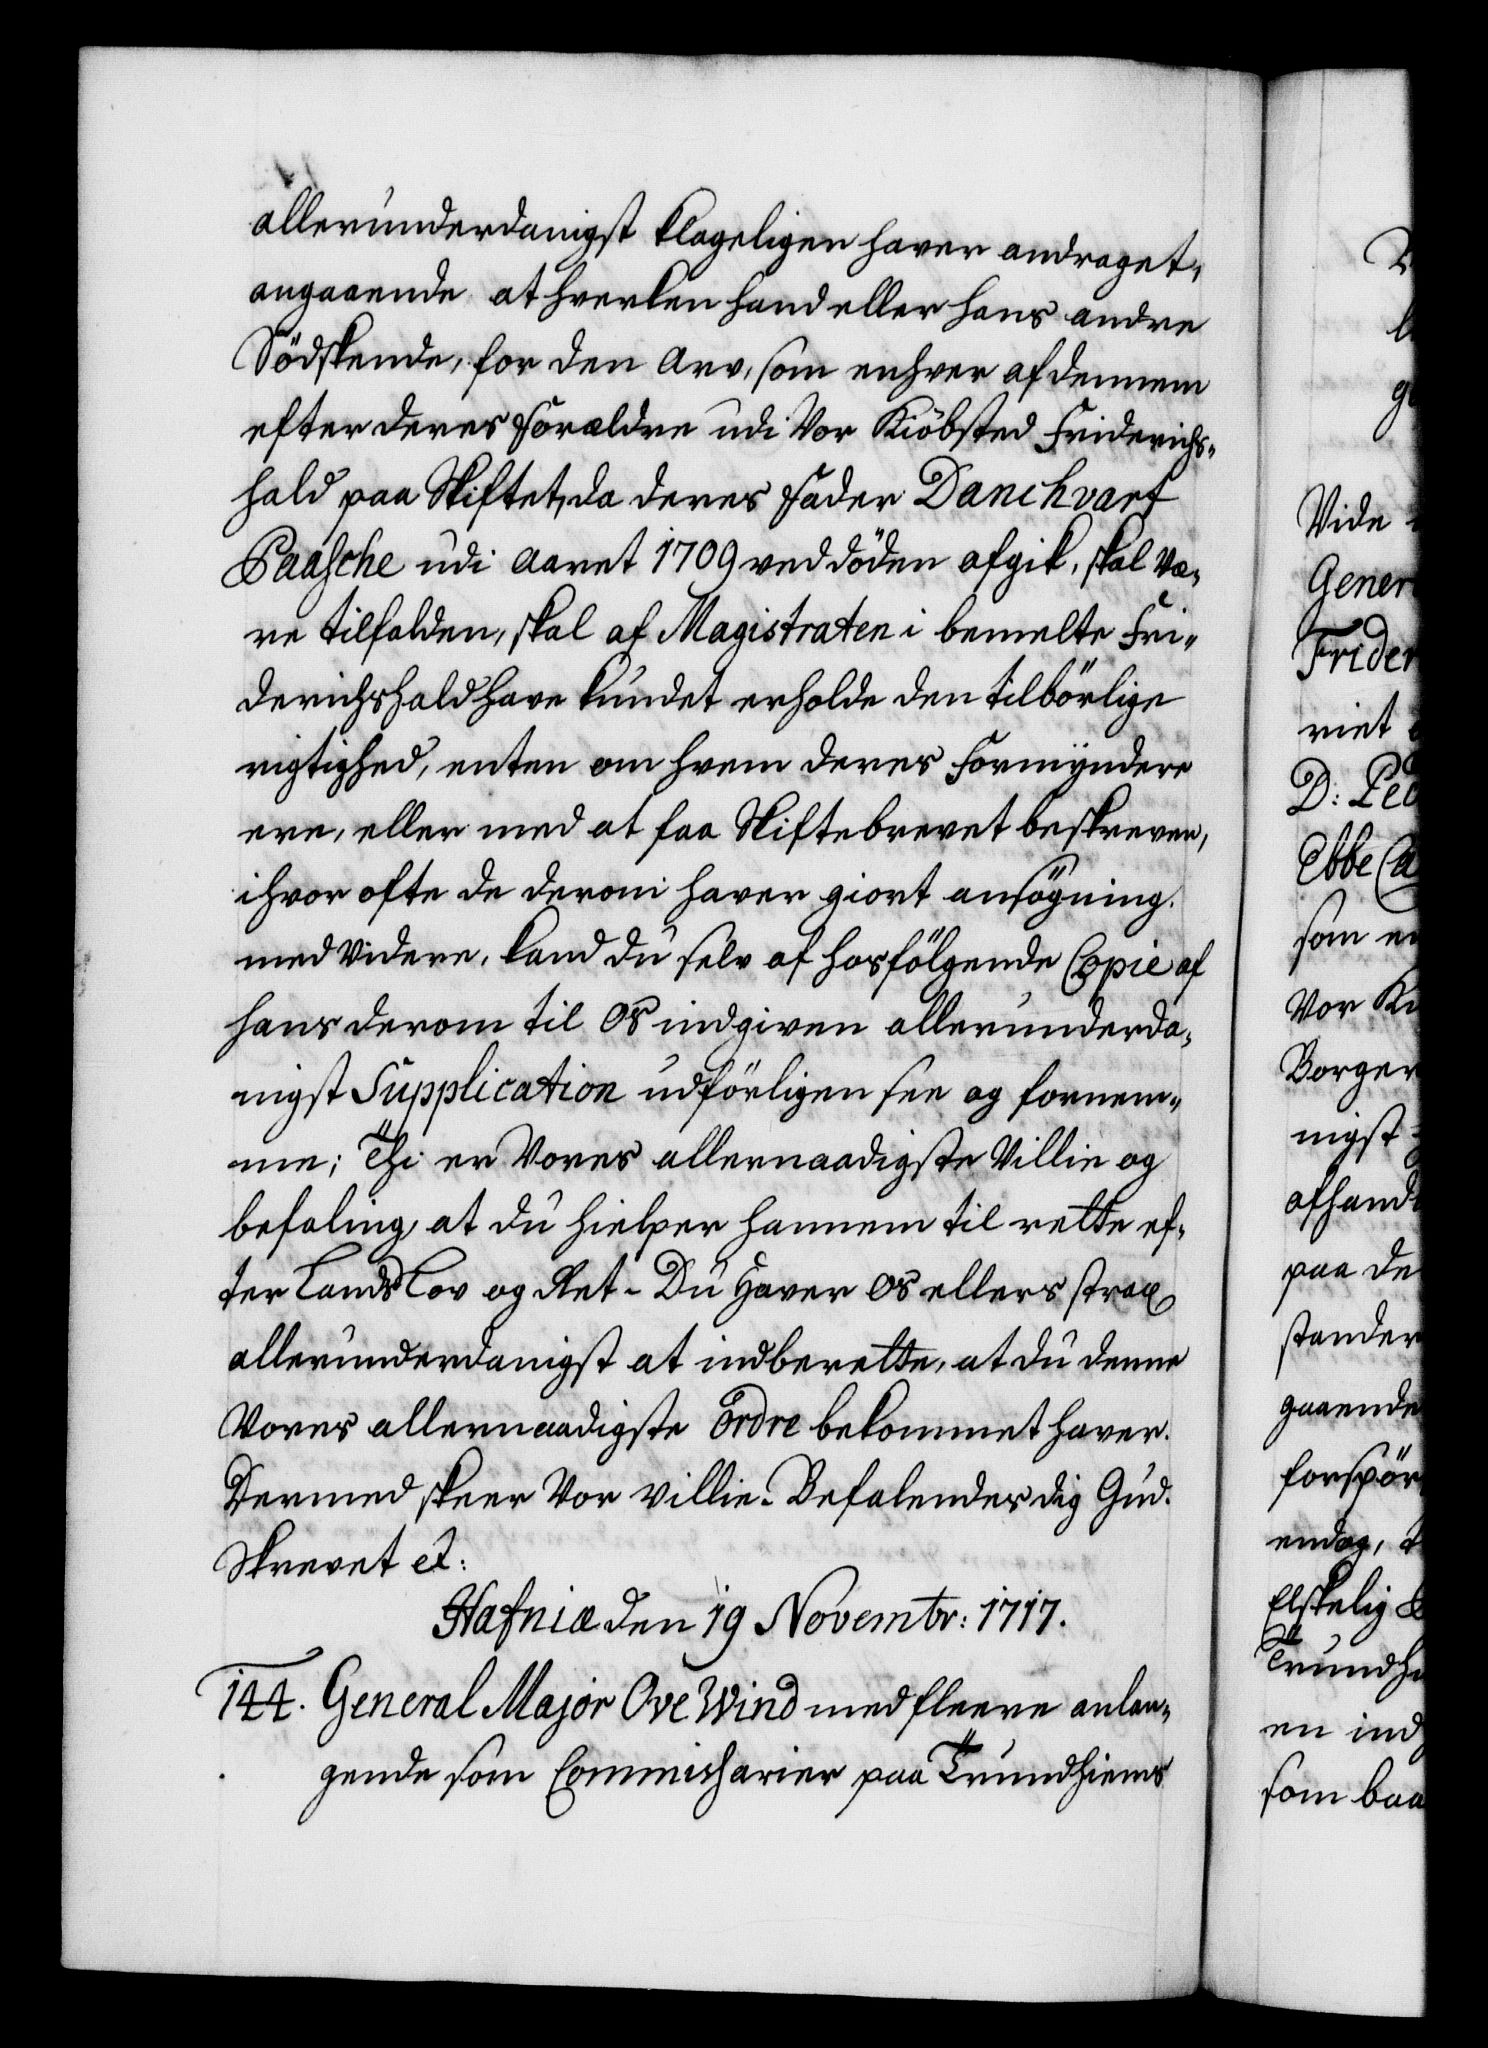 allerunderdanigst klageligen haver andraget,
angaaende at hverken hand eller hans andre
Södskende, for den Arv, som enhver af dennem
efter deres Forældre udi Vor Kiöbsted Friderichs-
hald paa Skiftet, da deres Fader Danchvart
Paasche udi Aaret 1709 ved döden afgik, skal væ-
re tilfalden, skal af Magistraten i bemelte Fri-
derichshald have kundet erholde den tilbörlige
rigtighed, enten om hvem deres Formyndere
ere, eller med at faa Skiftebrevet beskreven,
ihvor ofte de derom haver giort ansögning.
med videre, kand du selv af hosfölgende Copie af
hans derom til Os indgiven allerunderda-
nigst Supplication udförligen see og fornem-
me; Thi er Vores allernaadigste Villie og
befaling, at du hielper hannem til rette ef-
ter Lands Lov og Ret. Du Haver Os ellers strax
allerunderdanigst at indberette, at du denne
Vores allernaadigste Ordre bekommet haver.
Dermed skeer Vor villie. Befalendes dig Gud.
Skrevet et:
Hafniæ den 19 Novembr: 1717.
144. General Major Ove Wind med fleere anlan-
gende som Commissarier paa Trundhiems
Vide
Gener
Frider
riet
D: Ped
Ebbe Ca
som en
Vor Ki
Borger
nigst
afhand
paa de
stander
gaaende
forspör
endog,
Elskelig
Trundhi
en ind
som baa